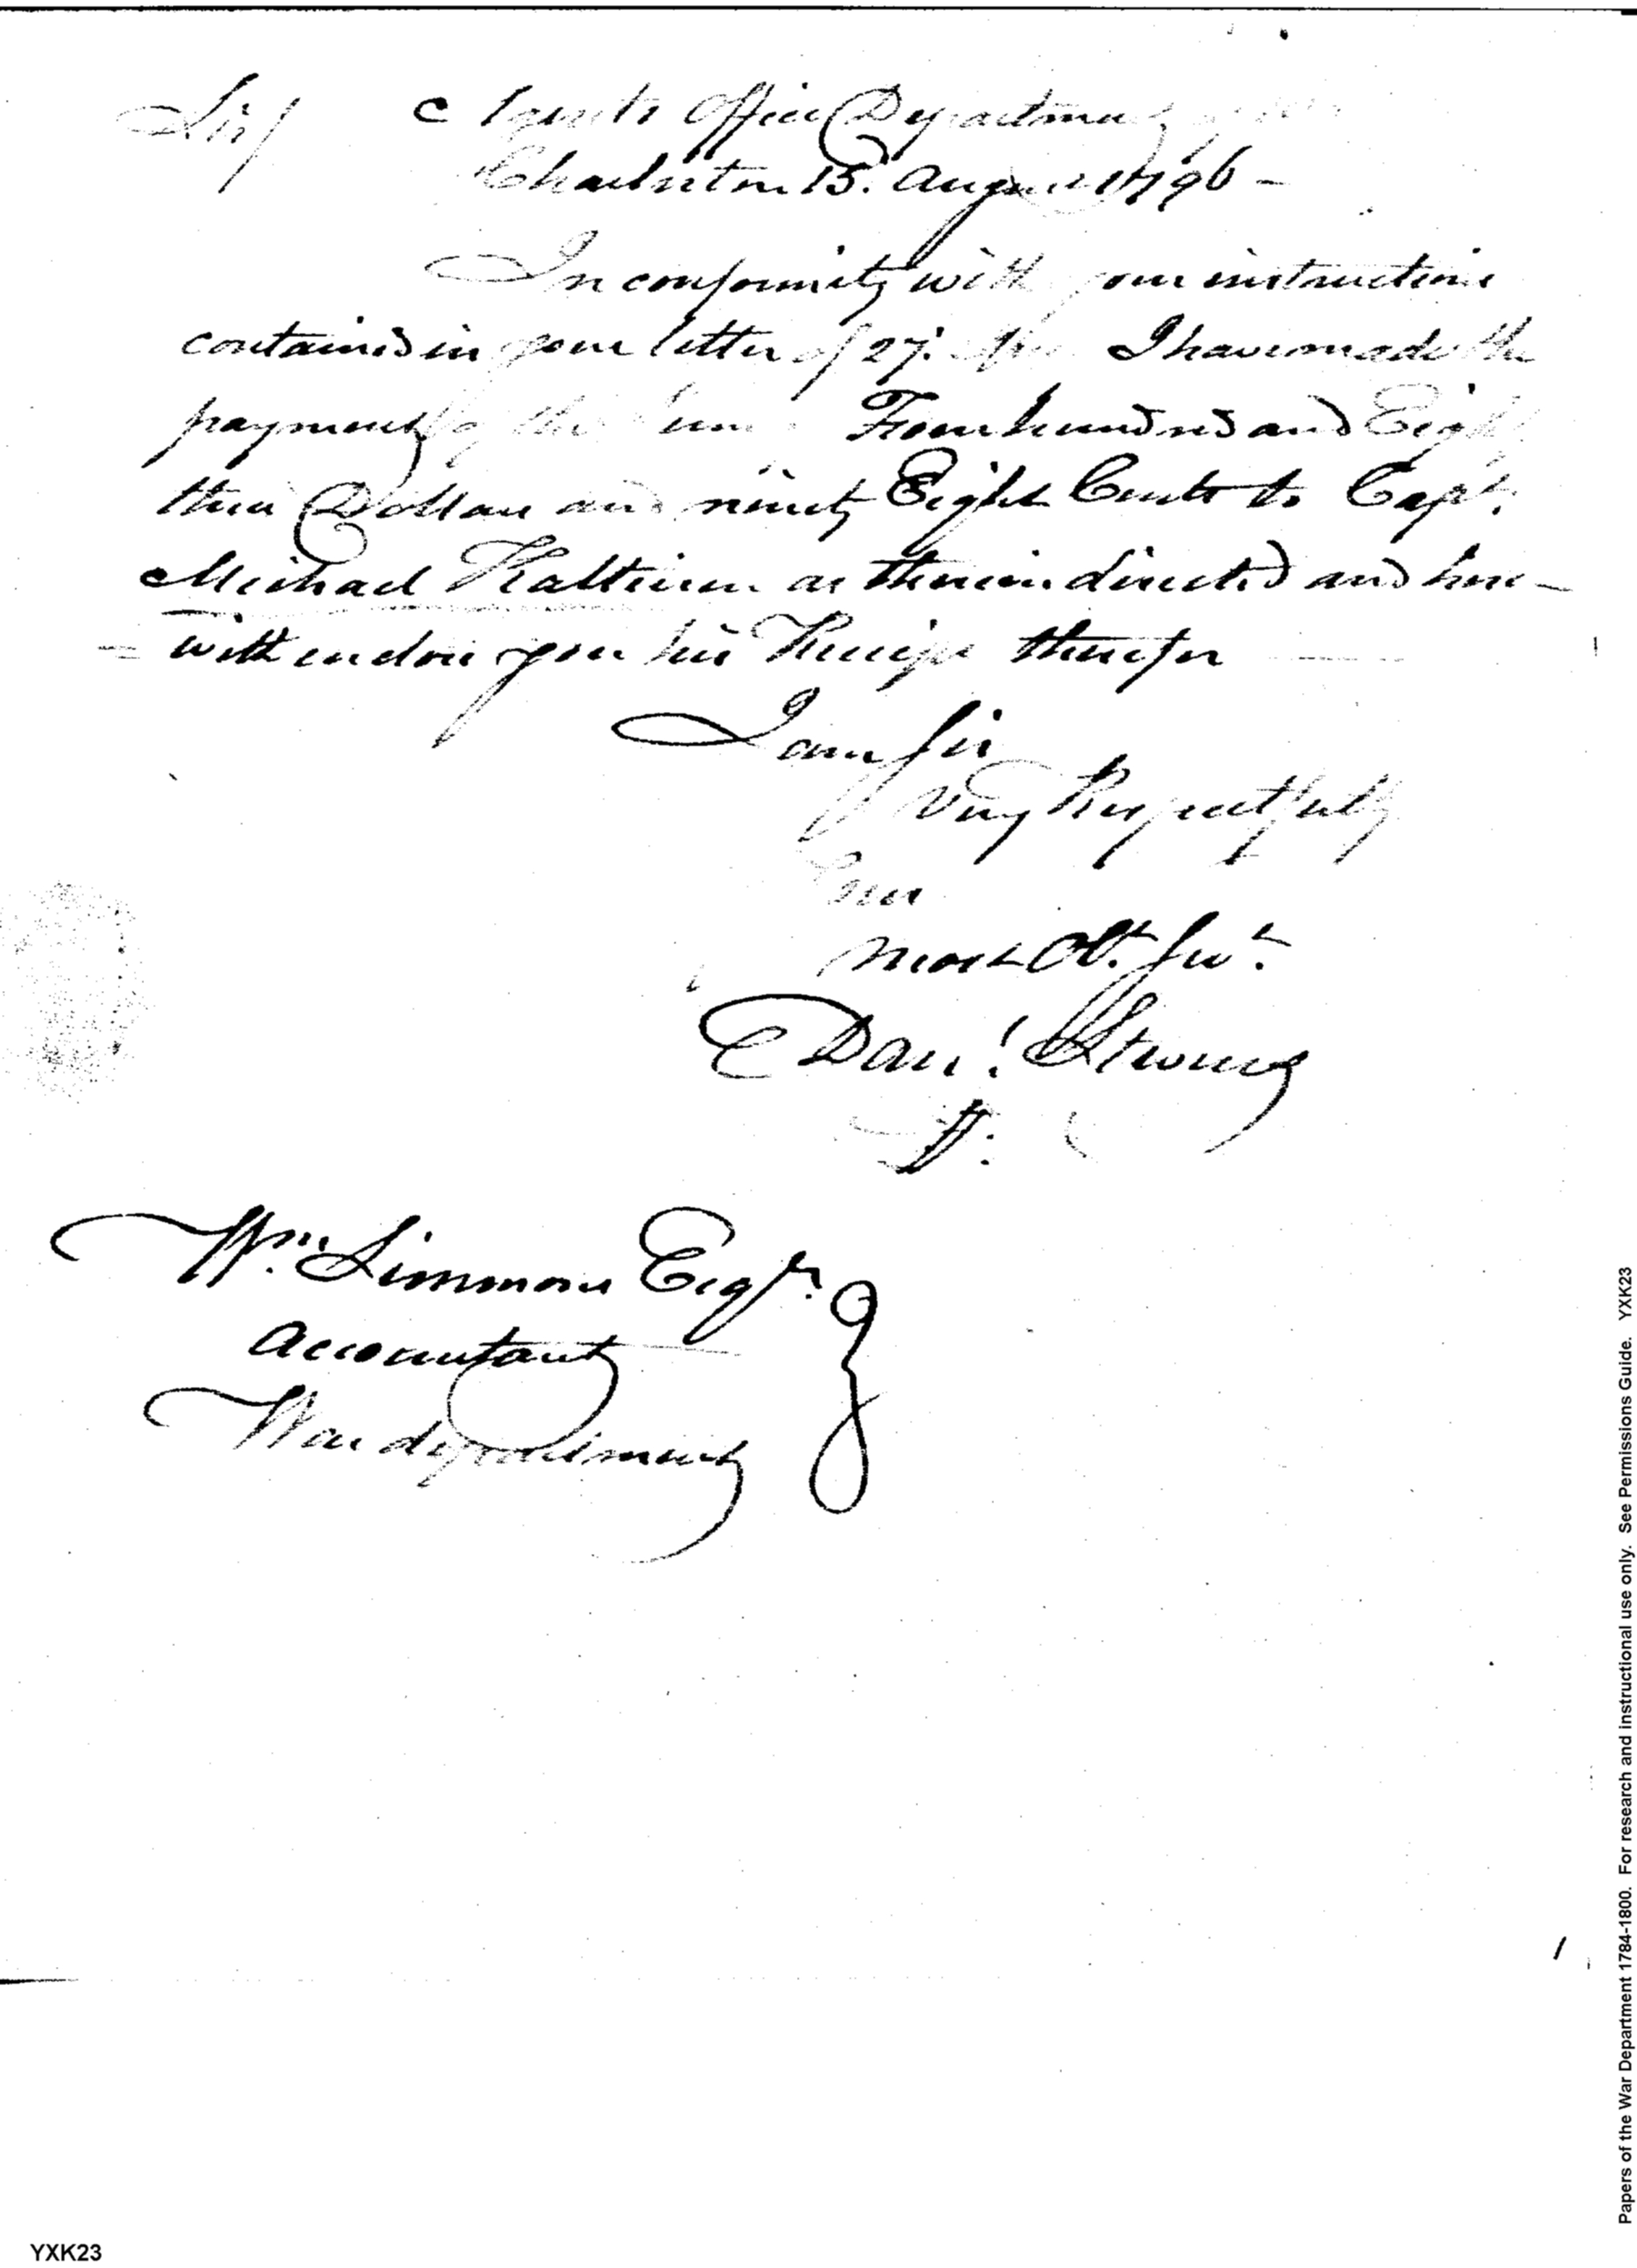 Sir/ Agents Office Department of War
Charleston 15. August 1796 -
In conformity with your instructions
contained in your letter of 27. I have made the
payment of the sum Four hundred and Eighty
three Dollars and ninety Eight Cents to Capt.
Michael Kalteisen as therein directed and here -
= with enclose you his Receipt therefor
I am Sir
Very Respectfully
Your
Most Ob. Svt.
Danl. Stevens
Wm. Simmons Esqr.
Accountant
War department
Papers of the War Department 1784-1800. For research and instructional use only. See Permissions Guide. YXK23
YXK23